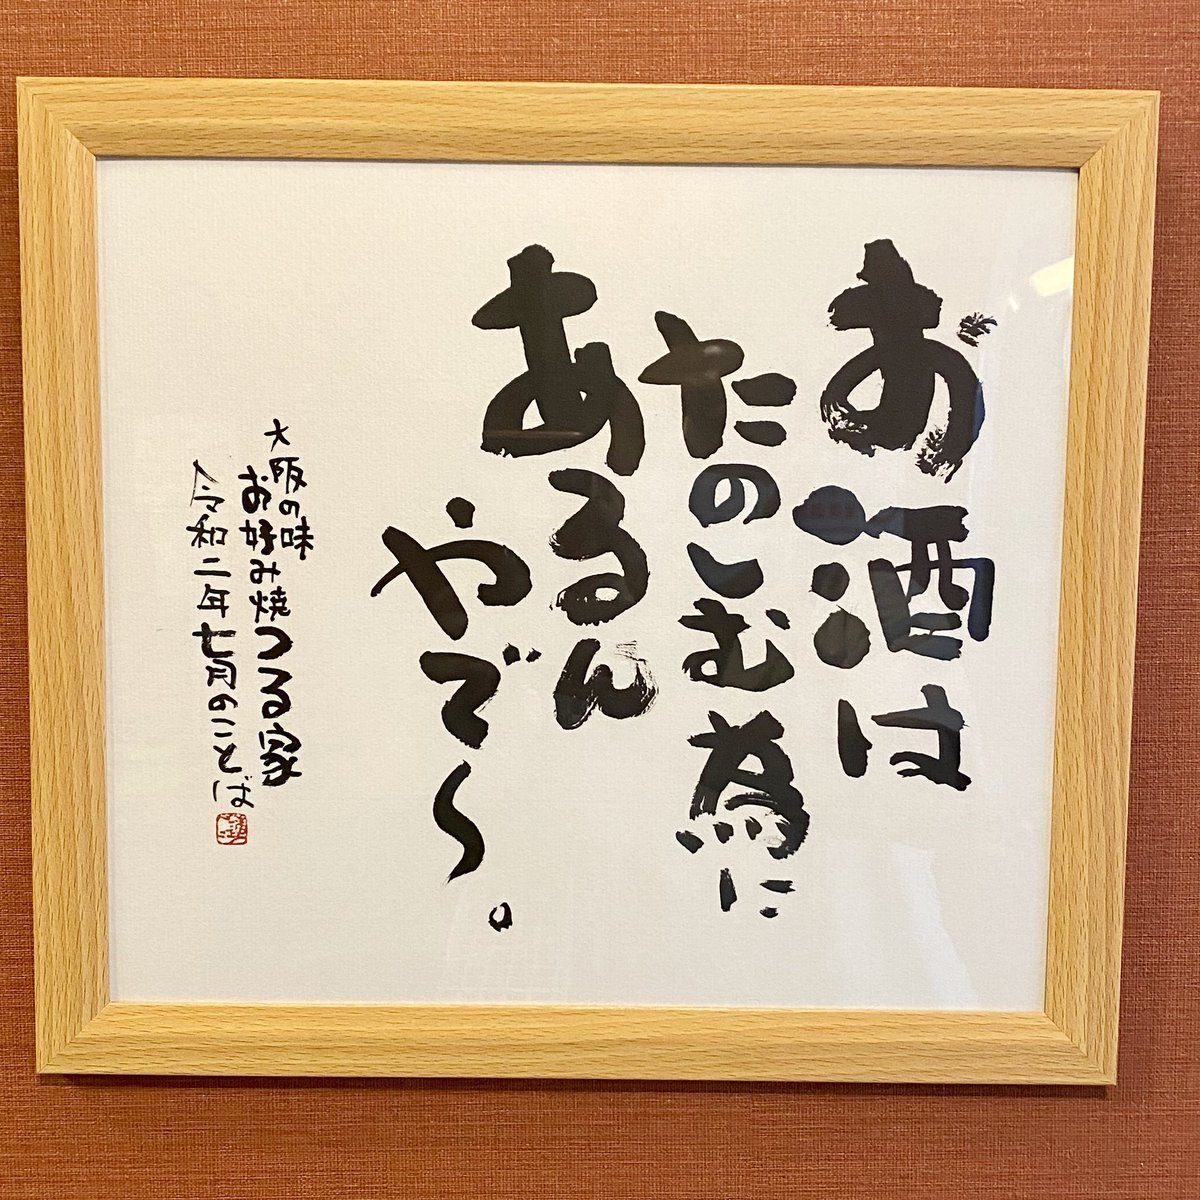 お酒は
たのしむ為に
あるん
やで〜。
大阪の味
お好み焼つる家
令和二年七月のことば